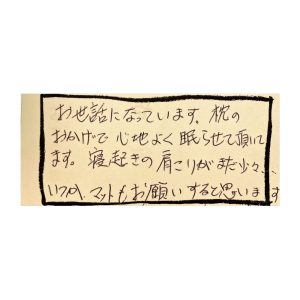 お世話になっています。枕の
おかげで心地よく眠らせて頂いて
ます。寝起きの肩こりがまだ少々…
いつか、マットもお願いすると思います